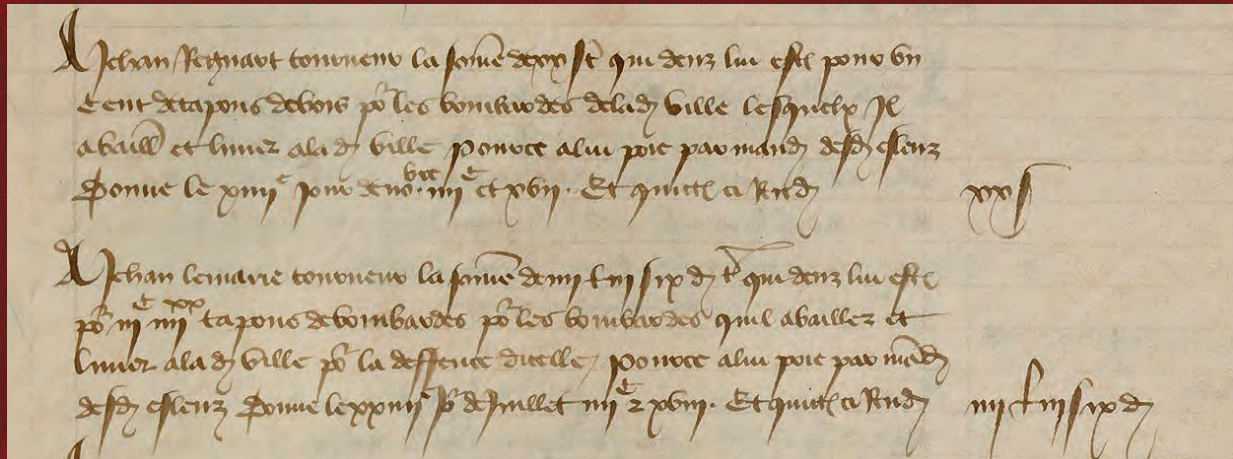 A Jehan Regnart tourneur la som̄e de xx s t qui deuz lui est pour un
Cent de tapons de bois po les bombardes de lad ville lesquelx Il
a baill et livrez a la d ville pource a lui poie par mand desd esleuz
Donne le xiiii e jour de nov bre iiii C et xvii. Et quict ci Rend
xx s
A Jehan lemarie tourneur la som̄e de iiii l iii s ix d t qui deuz lui est
po iii C iiii xx tapons de bombardes po les bombardes quil a baillez et
livrez a la d ville po la deffence dicelle, pource a lui poie par mād
desd esleuz Donne le xxiiii e Jo de Juillet iiii C z xviii. Et quict ci Rend
iiii l iii s ix d